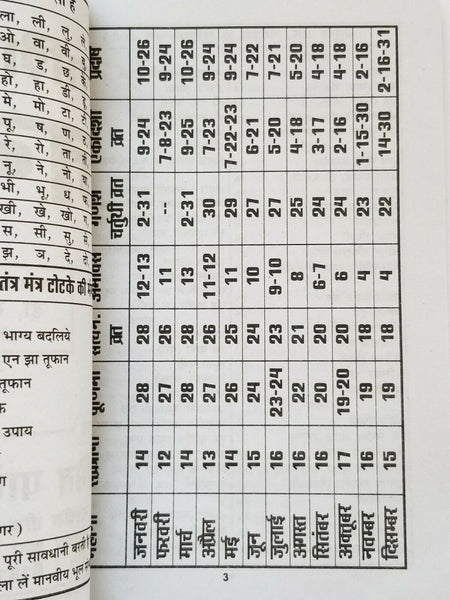 ला, ली, लु, ले
ओ, वा, वी,
घ, ड, छ,
हो, हा, डी,
मे, मो, टा,
पू, ष, ण,
रे, रो, ता,
नू, ने, नो,
भी, भू, ध,
खी, खे, खो,
स, सी, सु,
झ, ञ, दे,
तंत्र मंत्र टोटके की
भाग्य बदलिये
एन झा तूफान
तूफान
उपाय
पूरी सावधानी बरती
ला लें मानवीय भूल
गणेश एकादशी प्रदोष
व्रत चतुर्थी व्रत व्रत
जनवरी 14 28 28 12-13 2-31 9-24 10-26
फरवरी 12 27 27 11 -- 7-8-23 9-24
मार्च 14 28 28 13 2-31 9-24 10-26
अप्रैल 13 27 26 11-12 30 7-23 9-24
मई 14 26 25 11 29 7-22-23 9-24
जून 15 24 24 10 27 6-21 7-22
जुलाई 16 23-24 23 9-10 27 5-20 7-21
अगस्त 16 22 21 8 25 4-18 5-20
सितंबर 16 20 20 6-7 24 3-17 4-18
अक्टूबर 17 19-20 20 6 24 2-16 4-18
नवम्बर 16 19 18 4 23 1-15-30 2-16
दिसम्बर 15 19 18 4 22 14-30 2-16-31
3